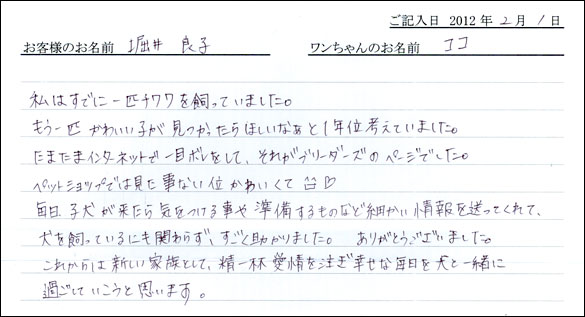 ご記入日 2012 年 2 月 1 日
お客様のお名前 堀井 良子 ワンちゃんのお名前 ココ
私はすでに一匹チワワを飼っていました。
もう一匹 かわいい子が見つかったらほしいなぁと1年位考えていました。
たまたまインターネットで一目ボレをして、それがブリーダーズのページでした。
ペットショップでは見た事ない位かわいくて ♡
毎日、子犬が来たら気をつける事や準備するものなど細かい情報を送ってくれて、
犬を飼っているにも関わらず、すごく助かりました。 ありがとうございました。
これからは新しい家族として、精一杯愛情を注ぎ幸せな毎日を犬と一緒に
過ごしていこうと思います。